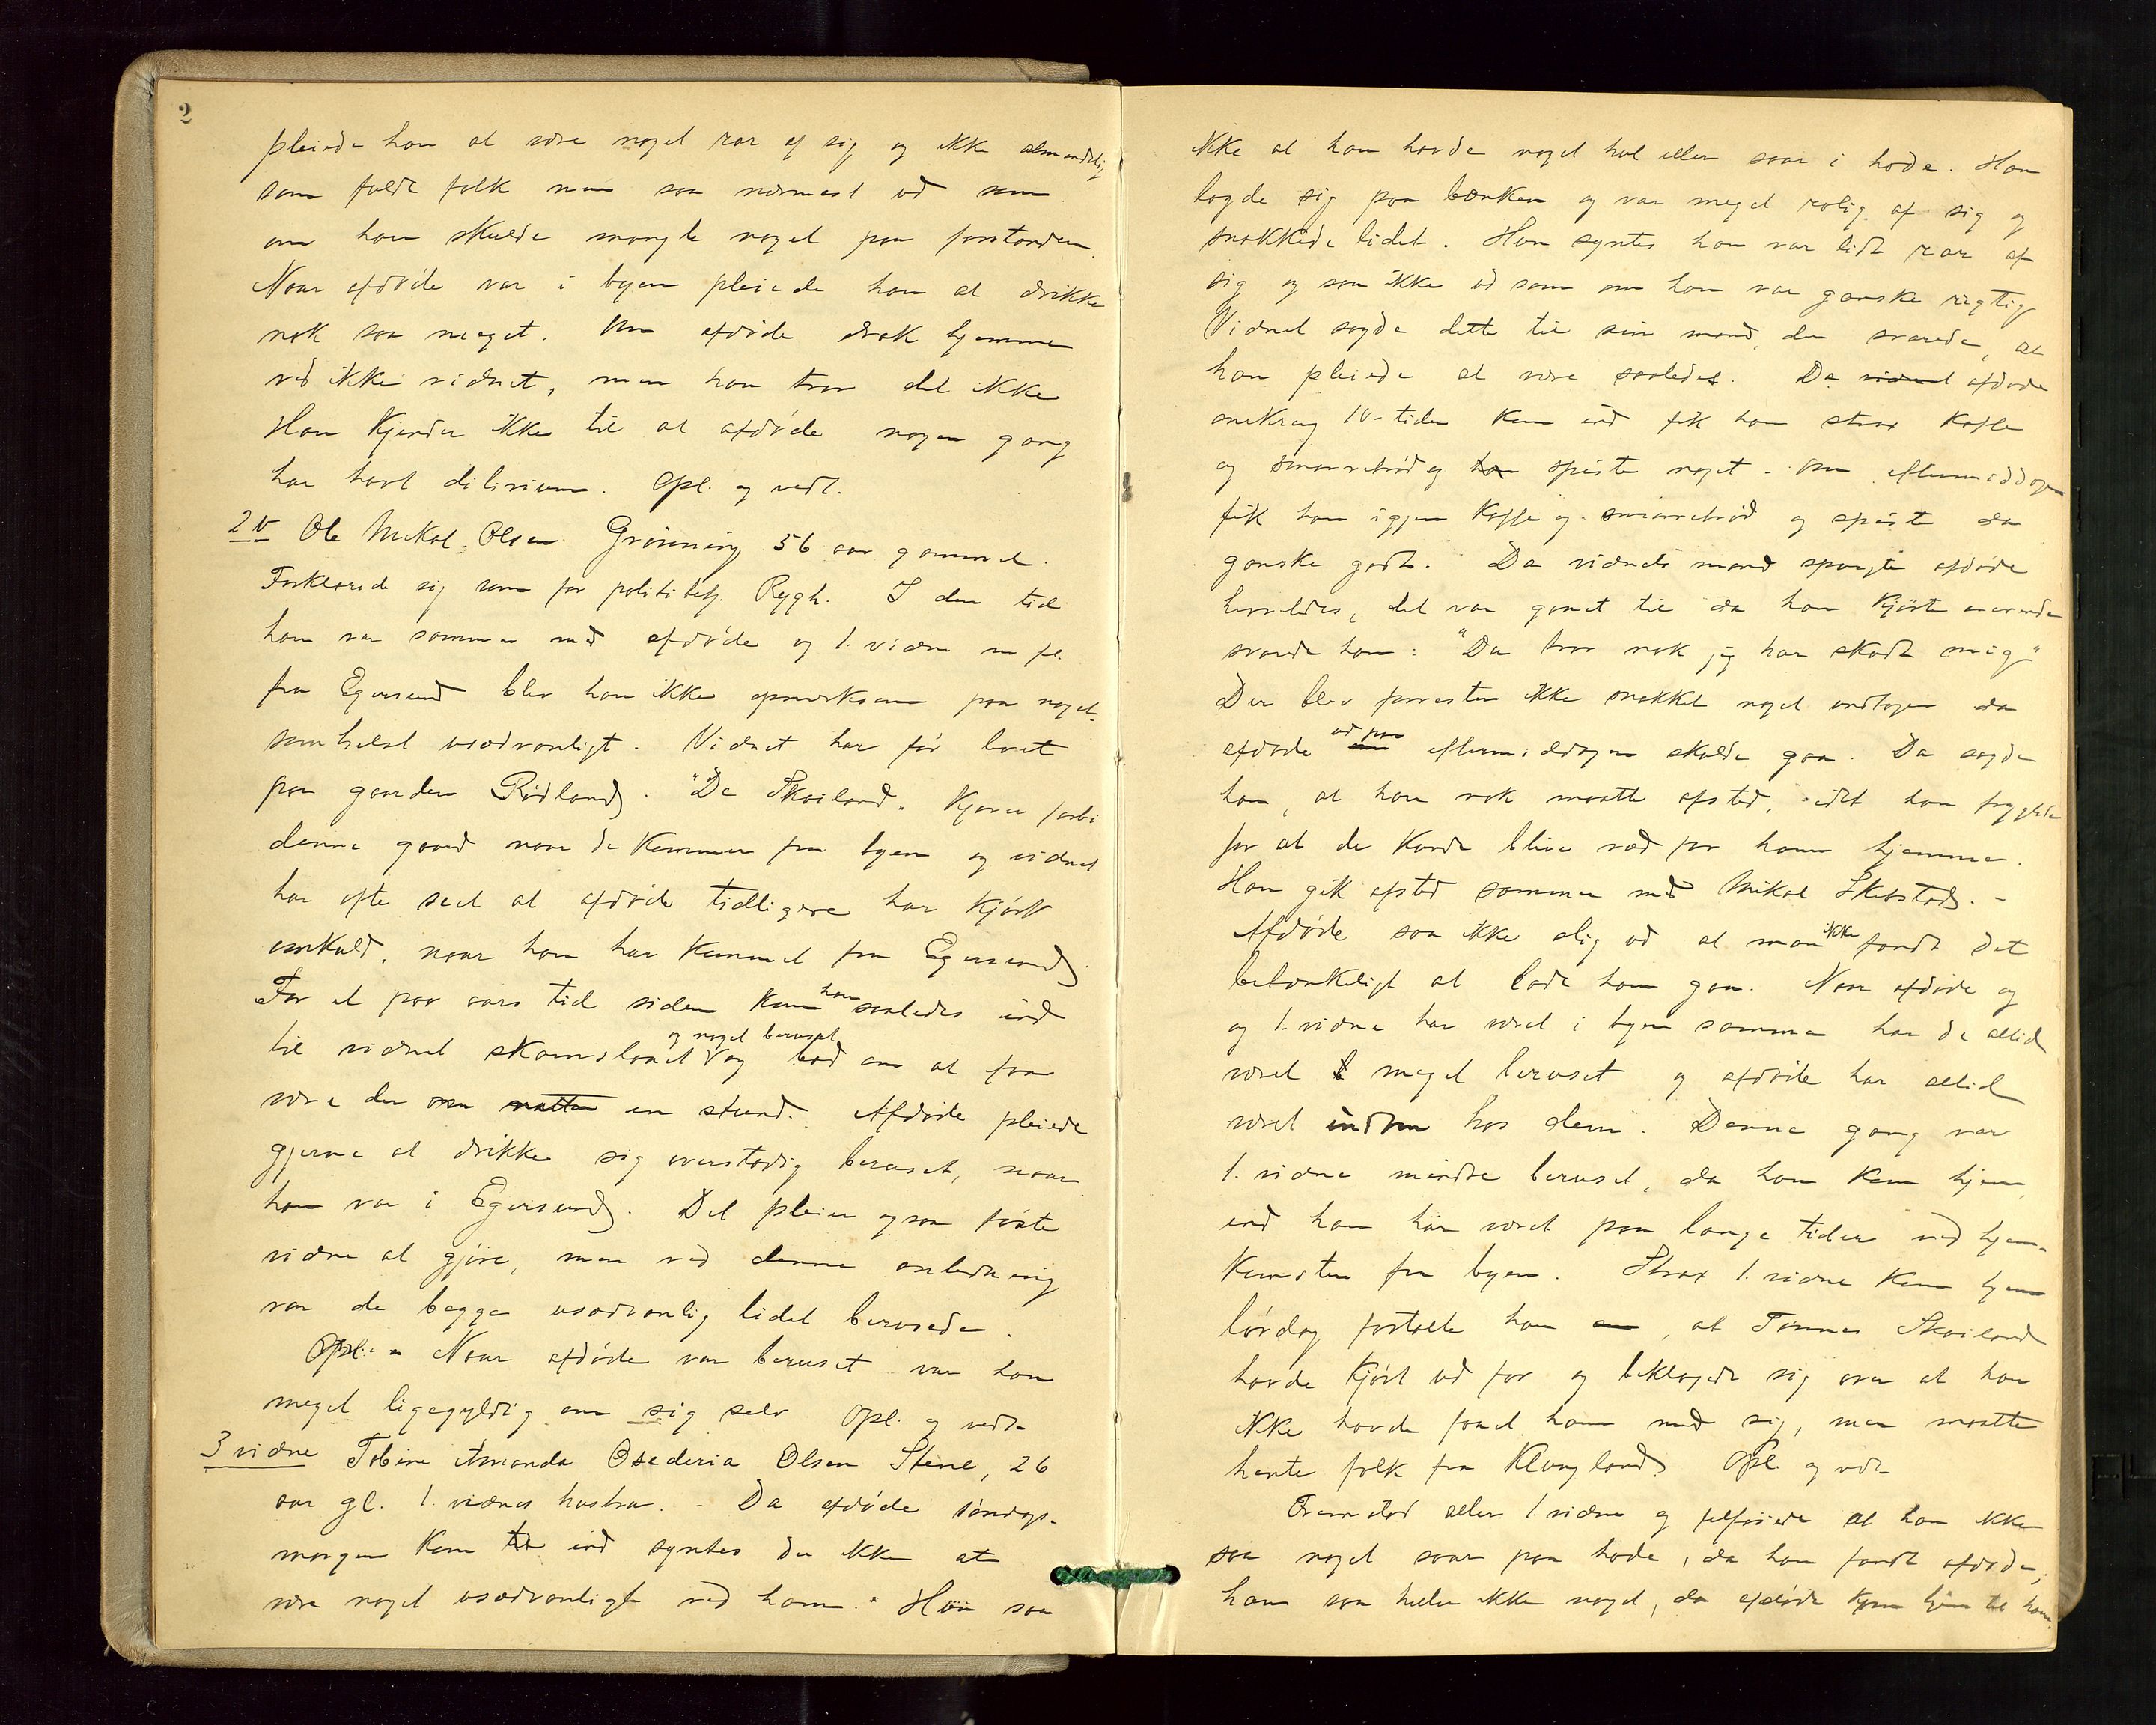 2
pleiede han at være noget rar af sig og ikke almindelig
som fulde folk men saa nærmest ud som
om han skulde mangle noget paa forstanden.
Naar afdøde var i byen pleiede han at drikke
nok saa meget. Om afdøde drak hjemme
ved ikke vidnet, men han tror det ikke
Han kjender ikke til at afdøde nogen gang
har havt delirium. Opl. og vedt.
2 v Ole Mikal Olsen Grønning 56 aar gammel.
Forklarede sig som for politibetj. Rygh. I den tid
han var sammen med afdøde og 1. vidne m fl.
fra Egersund blev han ikke opmærksom paa noget
somhelst usædvanligt. Vidnet har før boet
paa gaarden Rødland. "De Skailand. Kjører forbi
denne gaard naar de kommer fra byen og vidnet
har ofte seet at afdøde tidligere har kjørt
omkuld, naar han har kommet fra Egersund
For et par aars tid siden kom han saaledes ind
til vidnet skamslaaet og noget beruset og bad om at faa
være der om natten en stund. Afdøde pleiede
gjerne at drikke sig overstadig beruset, naar
han var i Egersund. Det pleier ogsaa første
vidne at gjøre, men ved denne anledning
var de begge usædvanlig lidet berusede.
Opl. - Naar afdøde var beruset var han
meget ligegyldig om sig selv Opl. og vedt.
3 vidne Tobine Amanda Osederia Olsen Stene, 26
aar gl. 1. vidnes hustru. - Da afdøde søndags-
morgen kom ind syntes der ikke at
være noget usædvanligt ved ham. Hun saa
ikke at han havde noget hul eller saar i hode. Han
lagde sig paa bænken og var meget rolig af sig og
snakkede lidet. Hun syntes han var lidt rar af
sig og saa ikke ud som om han var ganske rigtig
Vidnet sagde dette til sin mand, der svarede, at
han pleiede at være saaledes. Da vidnet afdøde
omkring 10-tiden kom ind fik han strax kaffe
og smørrebrød og han spiste noget - Om eftermiddagen
fik han igjen kaffe og smørrebrød og spiste da
ganske godt. Da vidnets mand spurgte afdøde
hvorledes, det var gaaet til da han kjørte
svarede han: "Du tror nok jeg har skadt mig"
Der blev forresten ikke snakket noget undtagen da
afdøde ud paa eftermiddagen skulde gaa. Da sagde
han, at han nok maatte afsted, idet han frygtede
for at de kunde blive ræd for ham hjemme.
Han gik afsted sammen med Mikal Skibstad. -
Afdøde saa ikke slig ud at man ikke fandt det
betænkeligt at lade ham gaa. Naar afdøde og
og 1. vidne har været i byen sammen har de altid
været meget beruset og afdøde har altid
været indom hos dem. Denne gang var
1. vidne mindre beruset, da han kom hjem,
end han har været paa lange tider ved hjem-
komsten fra byen. Strax 1. vidne kom hjem
lørdag fortalte han , at Tønnes Skailand
havde kjørt ud for og beklagede sig over at han
ikke havde faaet ham med sig, men maatte
hente folk fra Klungland. Opl. og vedt.
Fremstod atter 1. vidne og tilføiede at han ikke
saa noget saar paa hode, da han fandt afdøde,
han saa heller ikke noget, da afdøde kom hjem til ham.